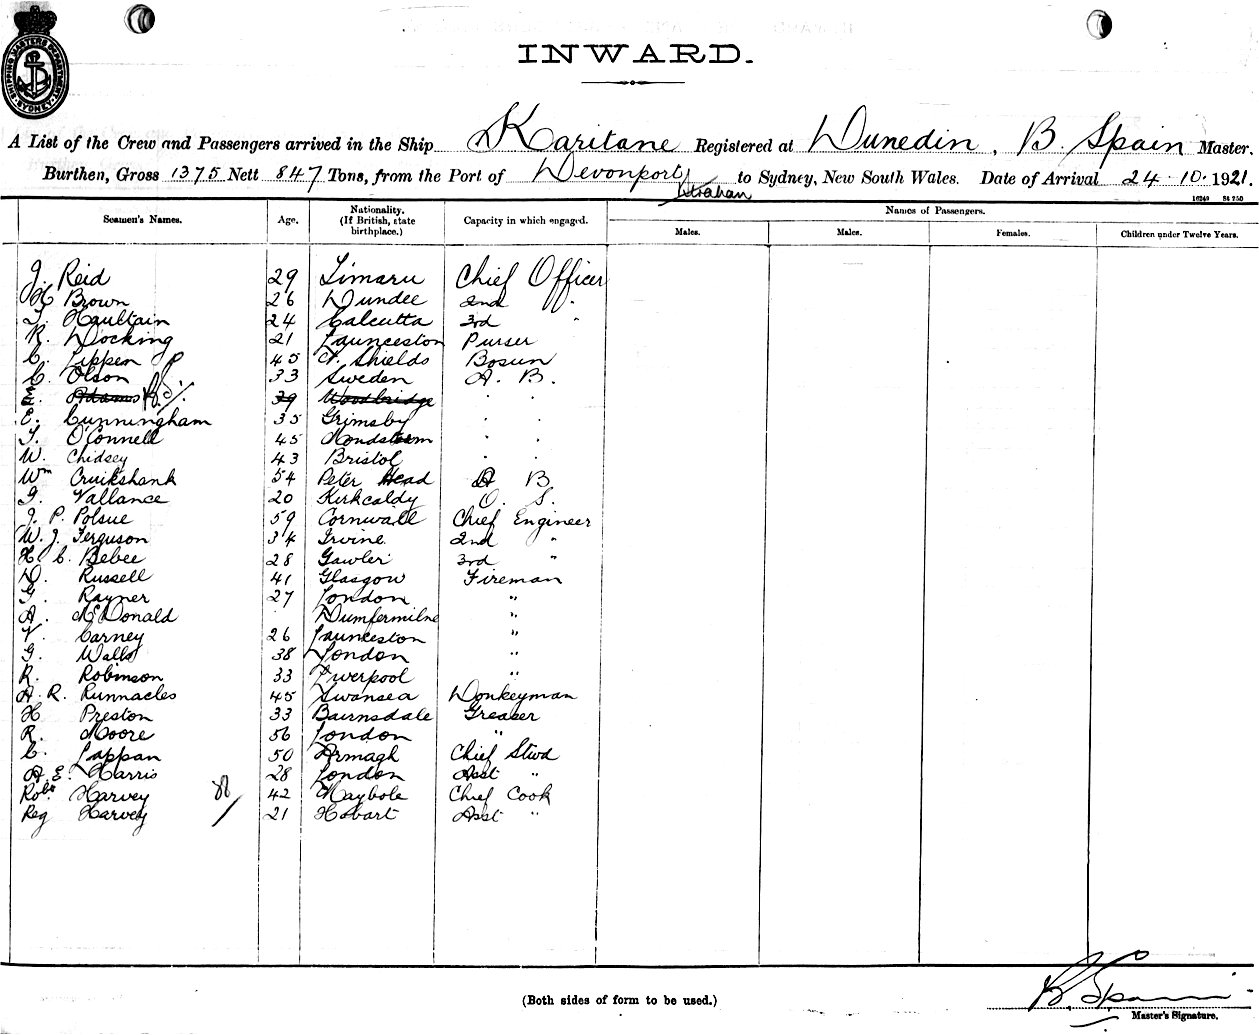 SHIPPING MASTERS DEPARTMENT SYDNEY
INWARD.
A List of the Crew and Passengers arrived in the Ship Karitane Registered at Dunedin, B. Spain Master.
Burthen, Gross 1375 Nett 847 Tons, from the Port of Devonport to Sydney, New South Wales. Date of Arrival 24·10·1921.
Strahan
Seamen's Names. Age. Nationality. (If British, state birthplace.) Capacity in which engaged. Names of Passengers.
Males. Males. Females. Children under Twelve Years.
J. Reid 29 Timaru Chief Officer
H Brown 26 Dundee 2nd "
T. Haultain 24 Calcutta 3rd "
R. Docking 21 Launceston Purser
C. Tippen P 45 N. Shields Bosun
C. Olson 33 Sweden A. B.
E. Adams 39 Woodbridge " "
E. Cunningham 35 Grimsby " "
T. O'Connell 45 " "
W. Chidsey 43 Bristol " "
Wm Cruikshank 54 Peter Head A B
G. Vallance 20 Kirkcaldy O. S.
J. P. Polsue 59 Cornwall Chief Engineer
W. J. Ferguson 34 Irvine 2nd "
H. C. Bebee 28 Gawler 3rd "
D. Russell 41 Glasgow Fireman
G. Rayner 27 London "
A. McDonald Dumfermilne "
V. Carney 26 Launceston "
G. Walls 38 London "
R. Robinson 33 Liverpool "
A. R. Runnacles 45 Swansea Donkeyman
H Preston 33 Bairnsdale Greaser
R. Moore 56 London "
C. Lappan 50 Armagh Chief Stwd
A. E. Harris 28 London Asst "
Robt Harvey 42 Maybole Chief Cook
Reg Harvey 21 Hobart Asst "
(Both sides of form to be used.)
B. Spain
Master's Signature.